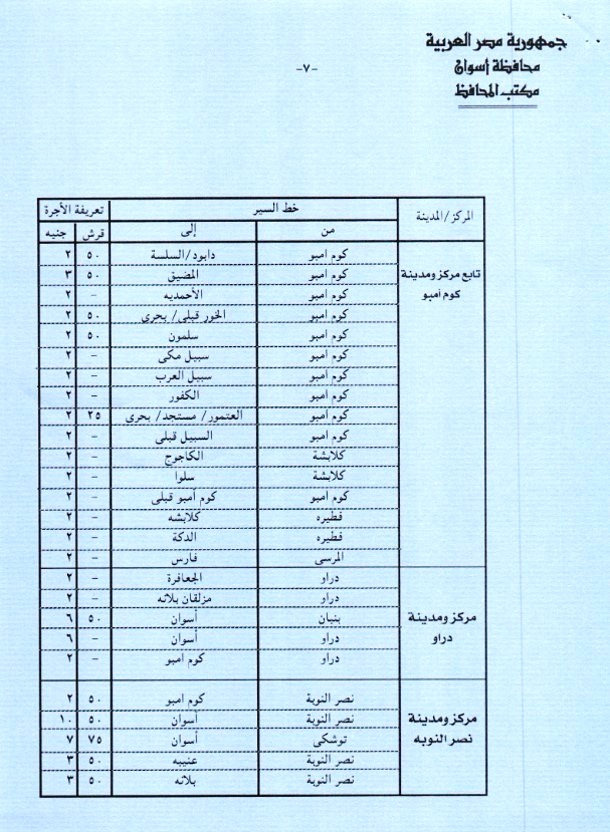 جمهورية مصر العربية
محافظة أسوان
مكتب المحافظ
-٧-
المركز/المدينة خط السير تعريفة الأجرة
من إلى قرش جنيه
كوم امبو دابود/السلسة ٥٠ ٢
تابع مركز ومدينة كوم امبو المضيق ٥٠ ٣
كوم أمبو كوم امبو الأحمديه - ٢
كوم امبو الخور قبلى/ بحرى ٥٠ ٢
كوم امبو سلمون ٥٠ ٢
كوم امبو سبيل مكى - ٢
كوم امبو سبيل العرب - ٢
كوم امبو الكفور - ٢
كوم امبو العتمور/ مستجد/ بحرى ٢٥ ٢
كوم امبو السبيل قبلى - ٢
كلابشة الكاجوج - ٢
كلابشة سلوا - ٢
كوم امبو كوم أمبو قبلى - ٢
فطيره كلابشه - ٢
فطيره الدكة - ٢
المرسى فارس - ٢
دراو الجعافرة - ٢
دراو مزلقان بلانه - ٢
مركز ومدينة بنبان أسوان ٥٠ ٦
دراو دراو أسوان - ٦
دراو كوم امبو - ٢
نصر النوبة كوم امبو ٥٠ ٢
مركز ومدينة نصر النوبة أسوان ٥٠ ١٠
نصر النوبه توشكى أسوان ٧٥ ٧
نصر النوبة عنيبه ٥٠ ٣
نصر النوبة بلانه ٥٠ ٣